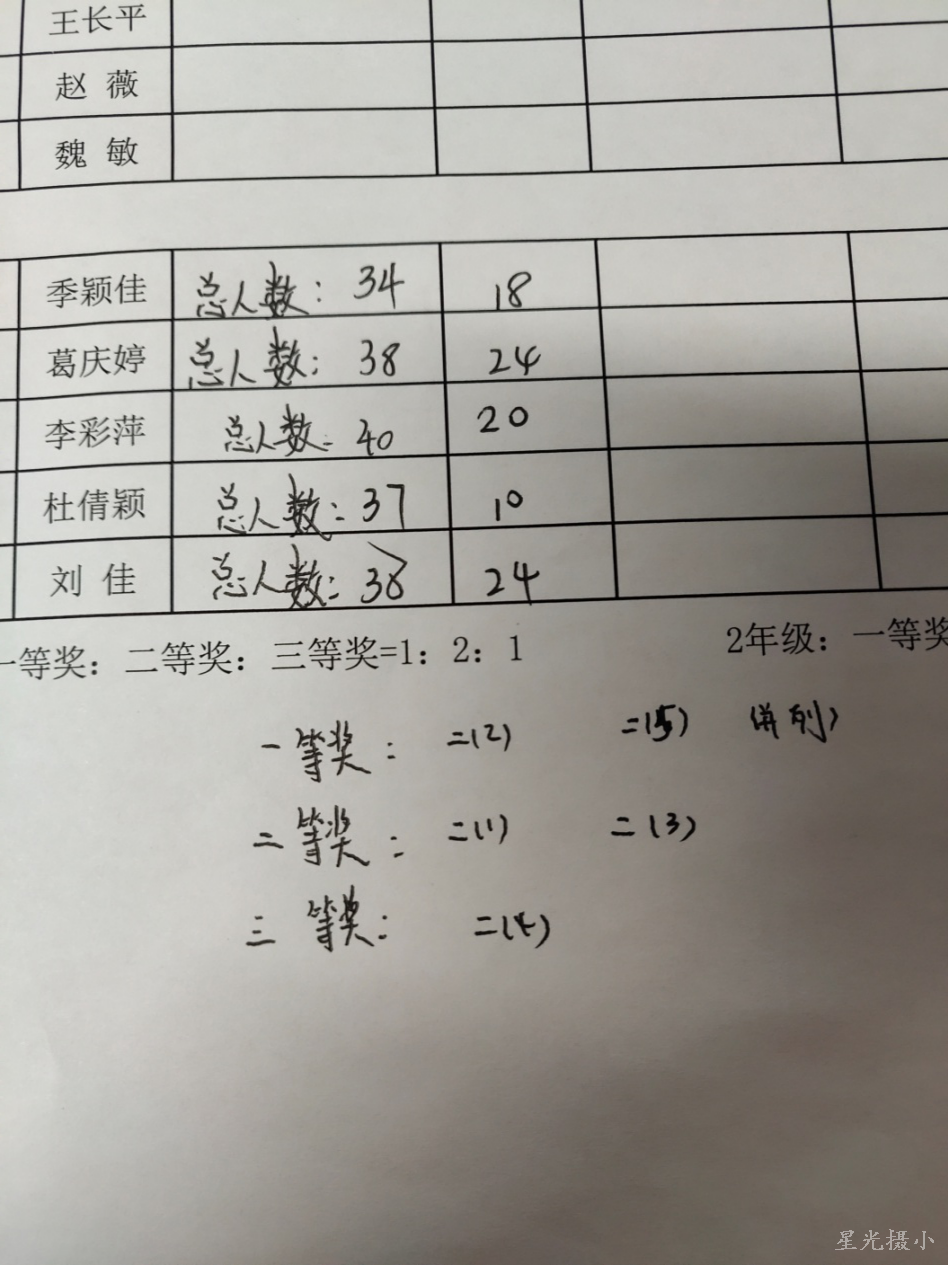 王长平
赵 薇
魏 敏
季颖佳 总人数: 34 18
葛庆婷 总人数: 38 24
李彩萍 总人数: 40 20
杜倩颖 总人数: 37 10
刘 佳 总人数: 38 24
一等奖: 二等奖: 三等奖=1: 2: 1 2年级: 一等奖
一等奖: 二(2) 二(5) (并列)
二等奖: 二(1) 二(3)
三等奖: 二(4)
星光摄小